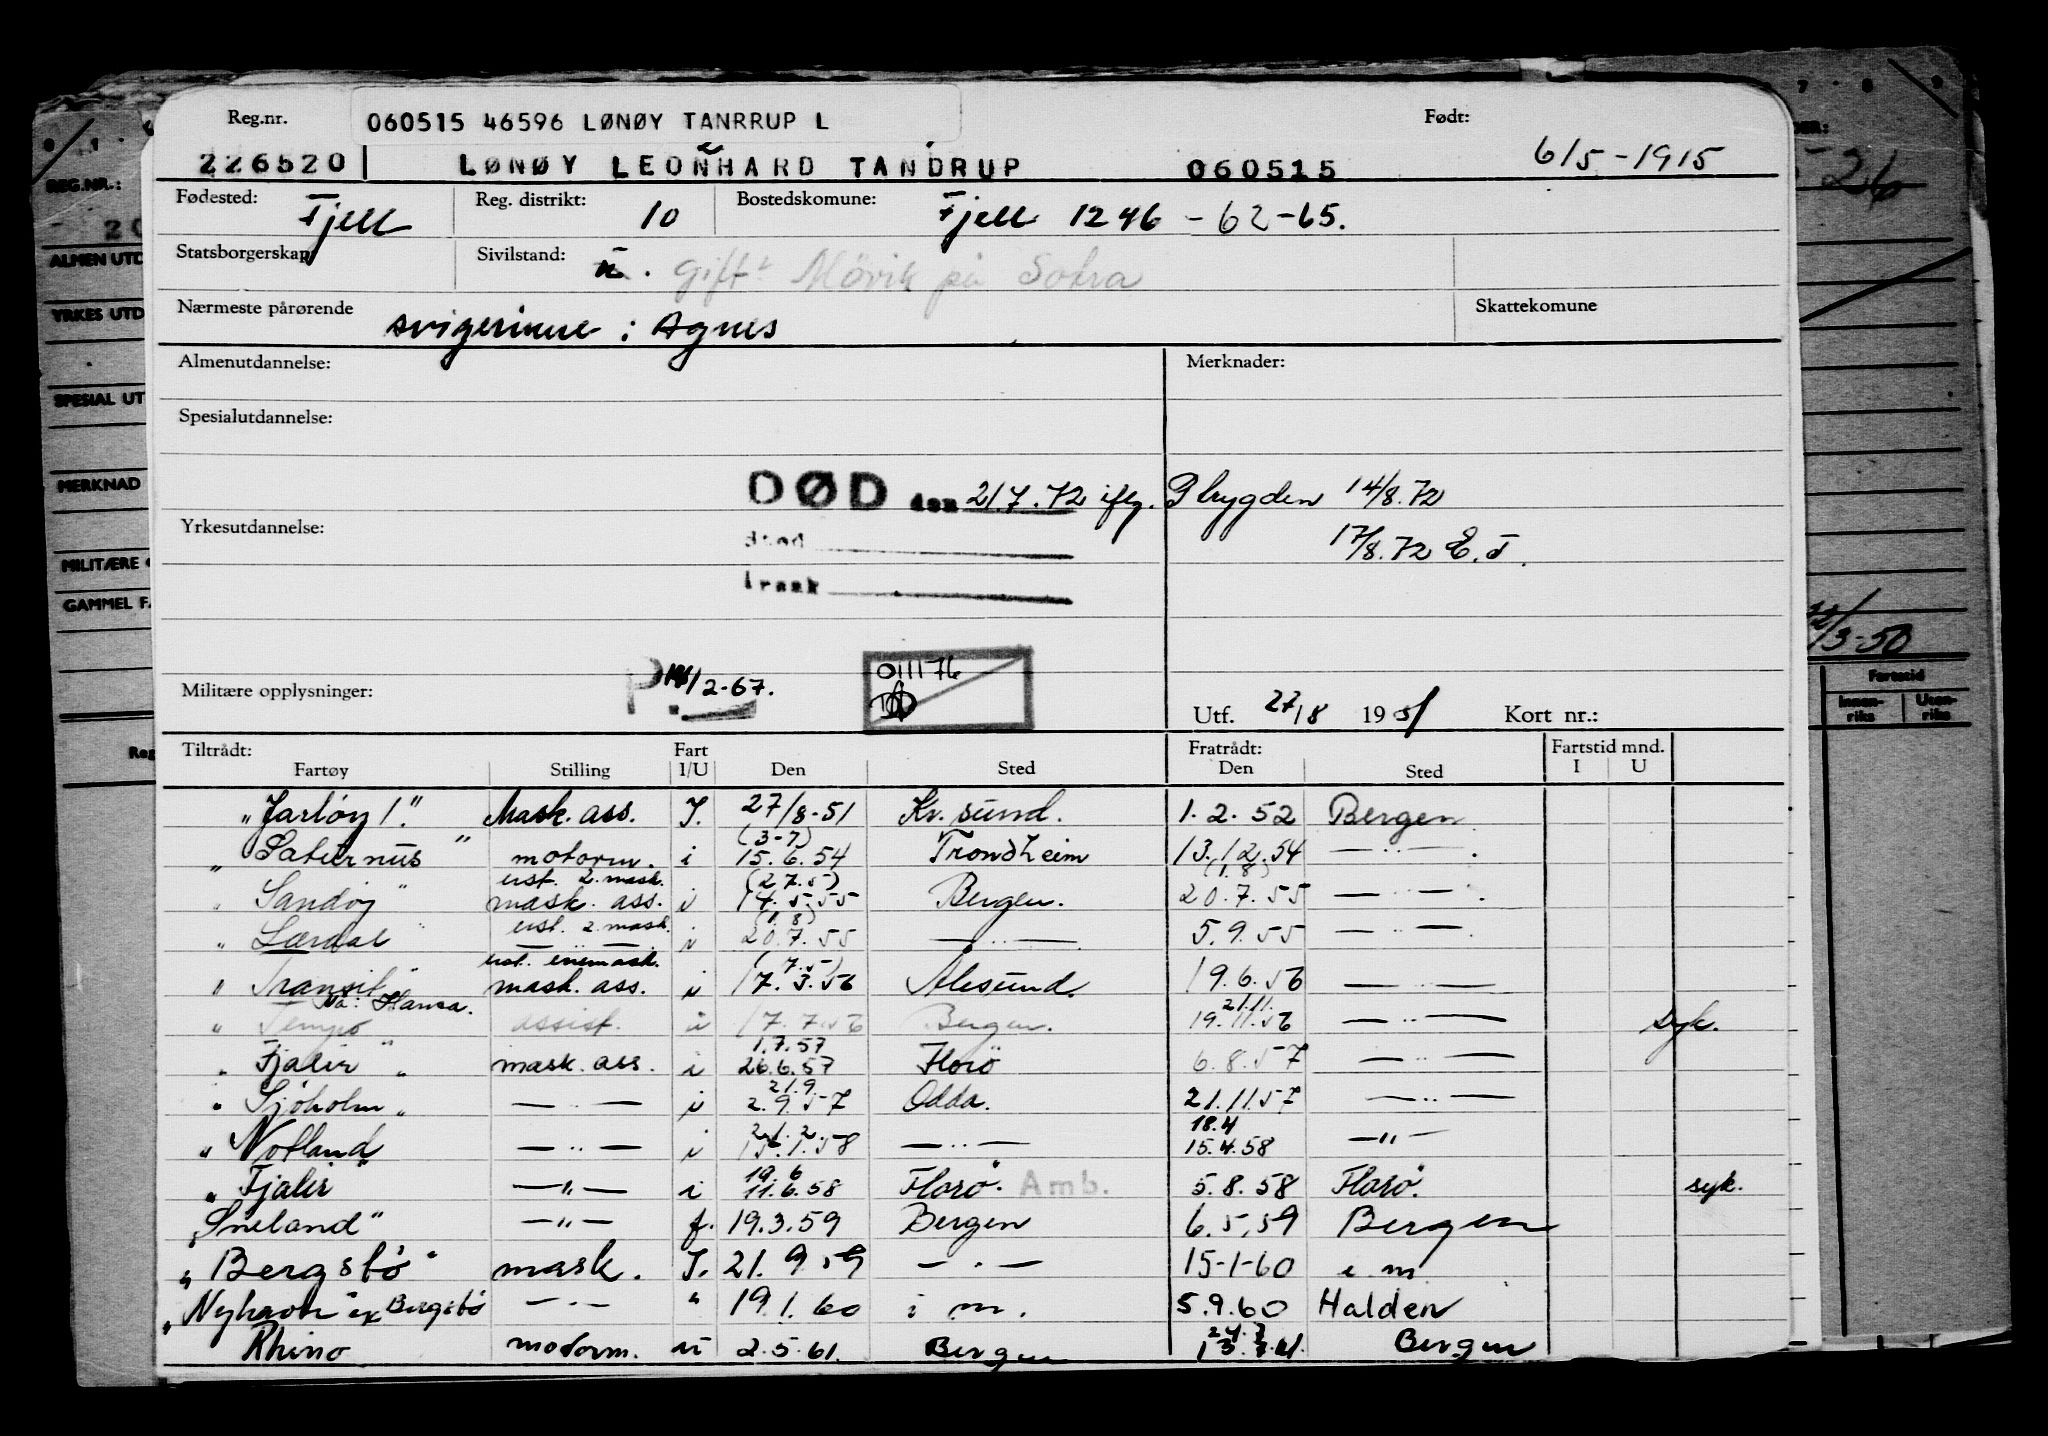 Reg.nr. 060515 46596 LØNØY TANRRUP L Født:
226520 LØNØY LEONHARD TANDRUP 060515 6/5-1915
e
Fødested: Fjell Reg. distrikt: 10 Bostedskomune: Fjell 1246 - 62-65.
Statsborgerskap: Sivilstand: Gift Mövik på Sotra
Nærmeste pårørende svigerinne: Agnes Skattekomune
Almenutdannelse: Merknader:
Spesialutdannelse:
DØD den 21.7.72 iflg. P brygden 14/8.72
Yrkesutdannelse: 17/8.72 E.T.
Militære opplysninger: P 2-67. 011176
Utf. 27/8 1951 Kort nr.:
Tiltrådt: Fart Fratrådt: Fartstid mnd.
Fartøy Stilling I/U Den Sted Den Sted I U
"Jarløy 1." Mask. ass. I. 27/8-51 Kr. sund. 1.2.52 Bergen
(3-7)
"Saturnus" motorm. i 15.6.54 Trondheim 13.12.54 — " —.
urt. 2. mask. (27.5) (1.8)
"Sandøy" mask. ass. i 14.5.55 Bergen. 20.7.55 — " —.
(1.8)
"Lærdal" urt. 2. mask. i 20.7.55 — " — 5.9.55 — " —
urt. enemask. (7.5)
"Transit" mask. ass. i 17.3.56 Ålesund. 19.6.56 — " —
Hansa. 21.11.
"Tempo assist. u 17.7.56 Bergen. 19.11.56 — " — Syk.
1.7.57
"Fjalir" mask. ass. i 26.6.57 Florö 6.8.57 — " —
21.9
"Sjöholm" — " — i 2.9.57 Odda. 21.11.57 — " —
18.4
"Notland — " — i 1.58 — " — 15.4.58 — " —
19.6
"Fjalir" — " — i 11.6.58 Florö. Amb. 5.8.58 Florö. syk.
"Sneland" — " — f. 19.3.59 Bergen 6.5.59 Bergen
"Bergsbö" mask. I. 21.9.59 — " — 15-1-60 i m
"Nyhavn" ex Bergsbö — " — " 19.1.60 i m. 5.9.60 Halden
Rhino motorm. u 2.5.61. Bergen Bergen
REG.NR.:
ALMEN UTD
YRKES UTD
SPESIAL UT
MERKNAD
MILITÆRE
GAMMEL FA
Reg
/3-50
Fartstid
Innen-riks Uten-riks